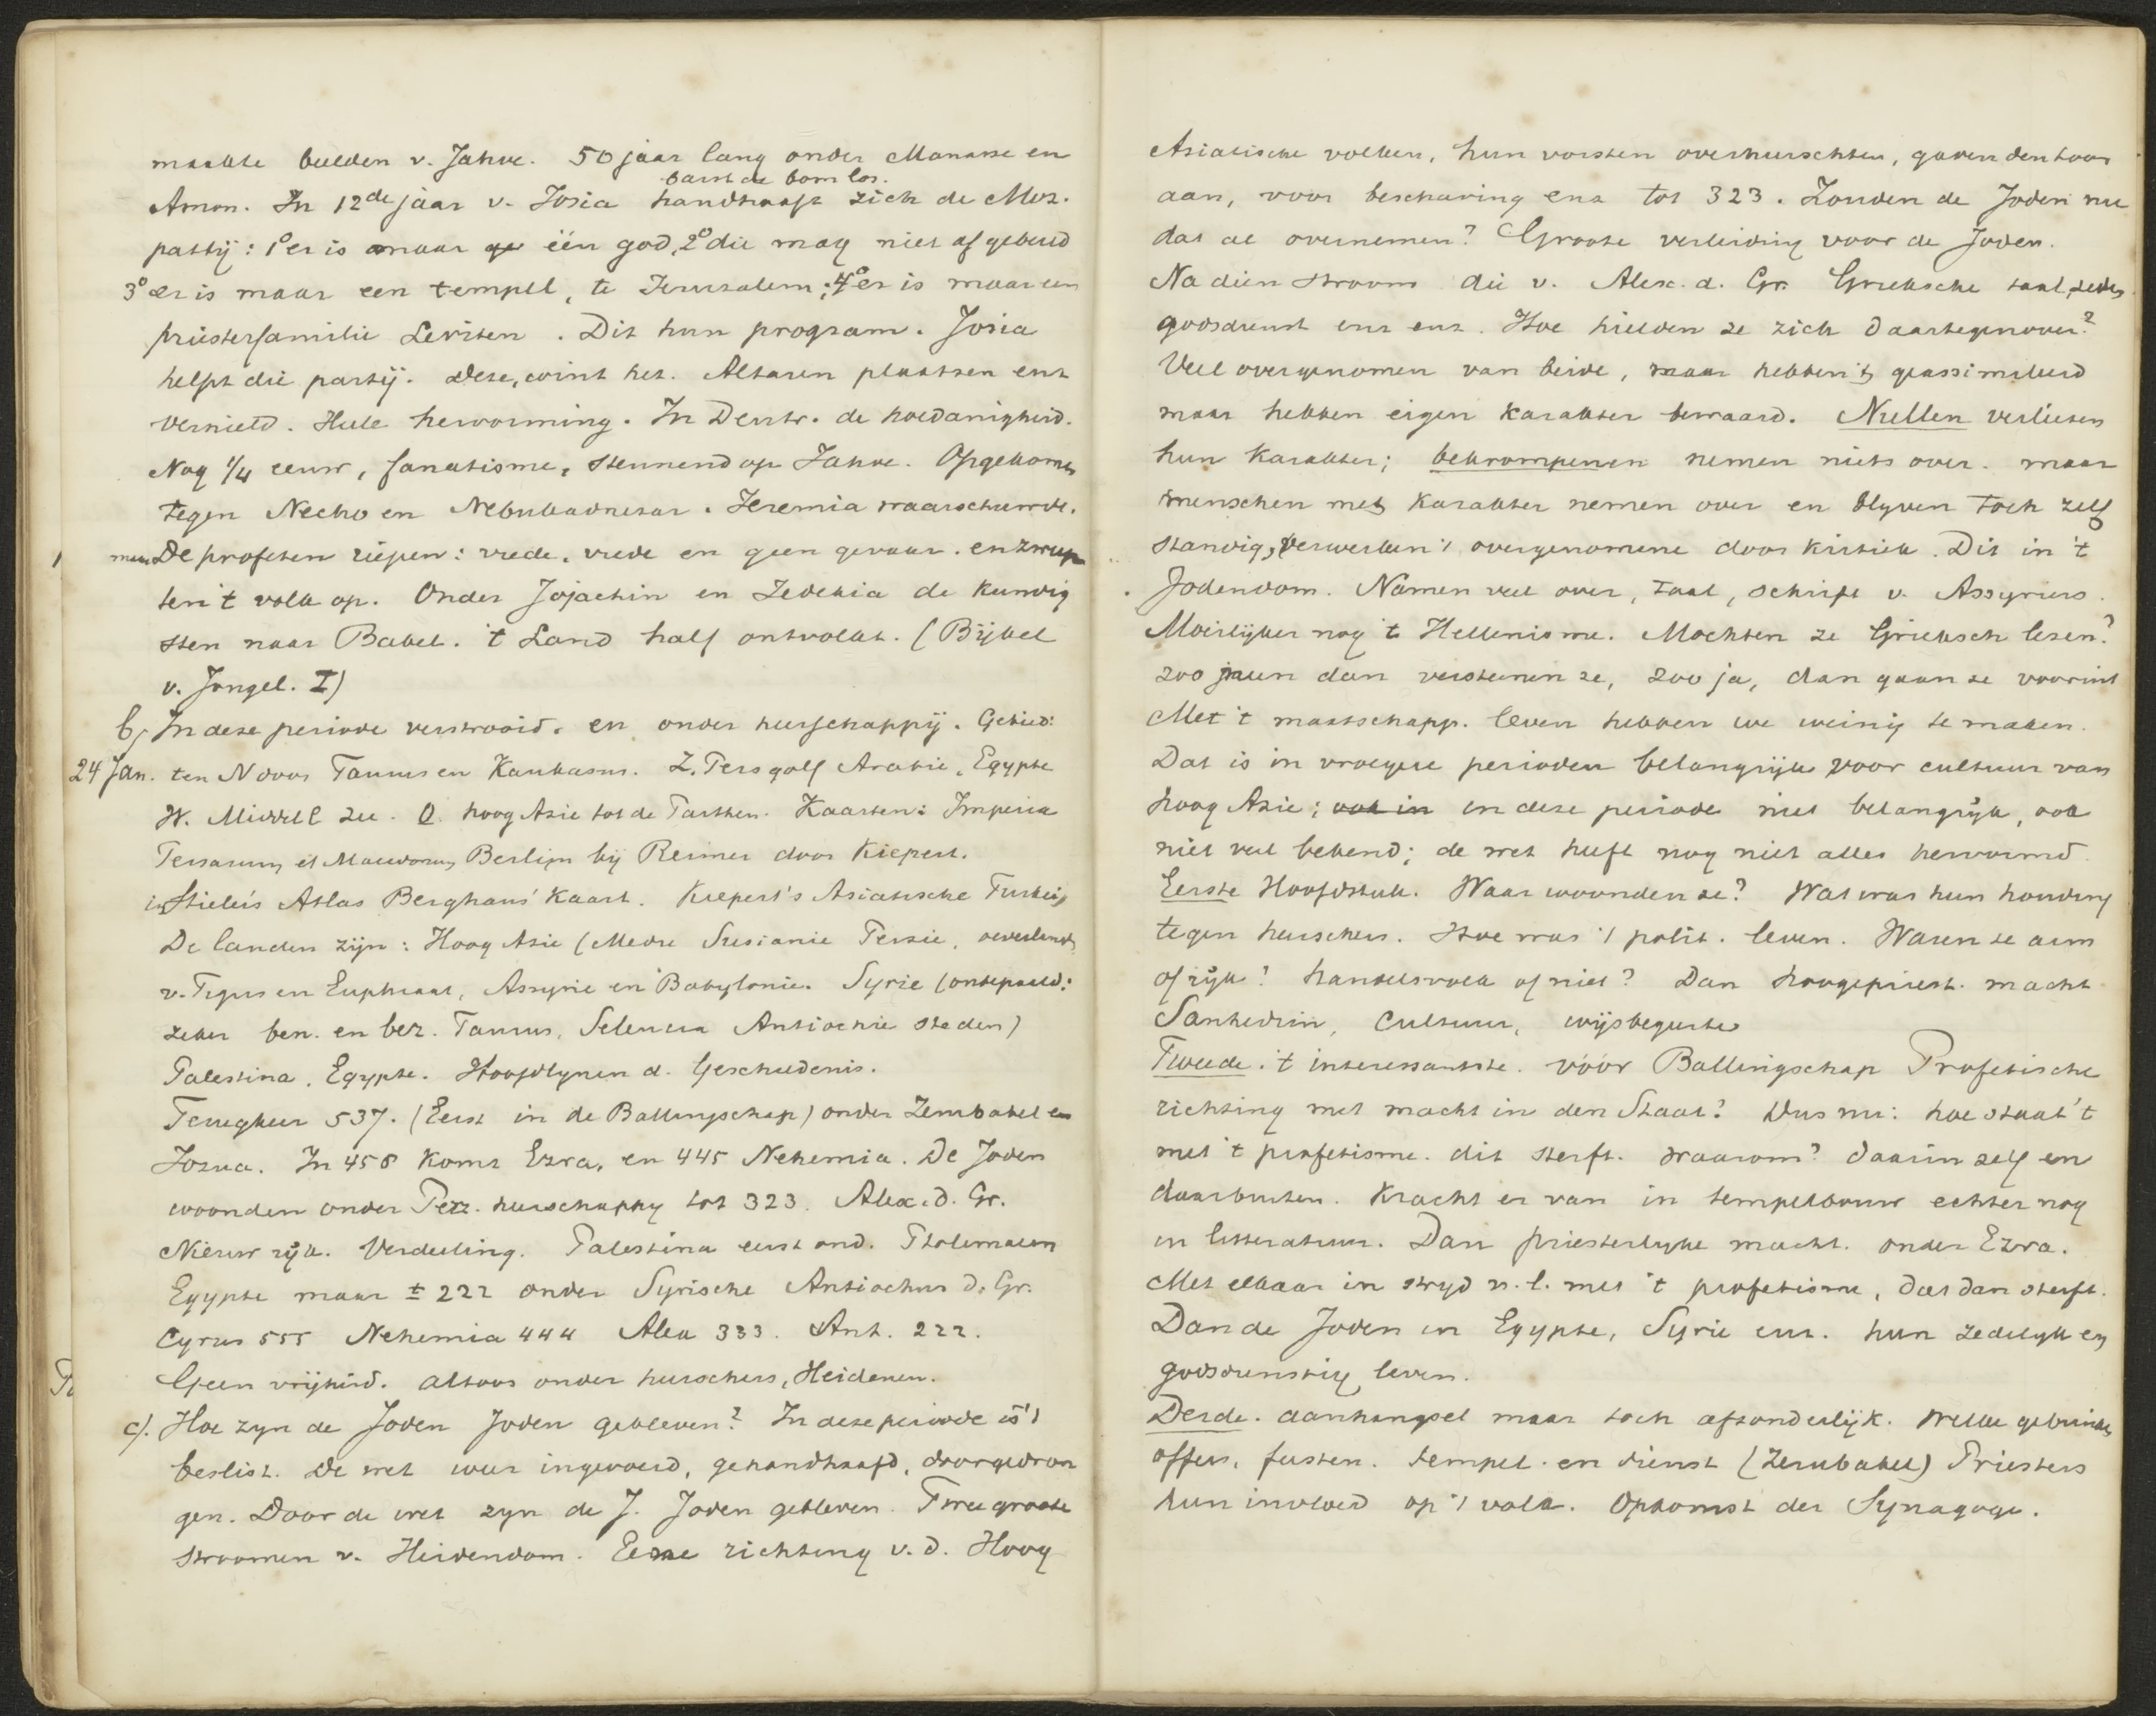 maakte beelden v. Jahve. 50 jaar lang onder Manasse en
barst de bom los.
Amon. In 12de jaar v. Josia handhaaft zich de Moz.
partij: 1o er is maar één god, 2o die mag niet afgebeeld
3o er is maar een tempel, te Jerusalem; 4o er is maar een
priesterfamilie Leviten. Dit hun program. Josia
helpt die partij. Deze, wint het. Altaren plaatsen enz
vernield. Heele hervorming. In Deutr. de hoedanigheid.
Nog 1/4 eeuw, fanatisme, steunend op Jahve. Opgekomen
tegen Necho en Nebukadnezar. Jeremia waarschuwde.
maar De profeten riepen: vrede, vrede en geen gevaar. en zweep
ten 't volk op. Onder Jojachin en Zedekia de kundig
sten naar Babel. 't Land half ontvolkt. (Bijbel
v. Jongel. I)
b) In deze periode verstrooid. en onder heerschappij. Gebied:
24 Jan. ten N door Taurus en Kaukasus. Z. Perz golf Arabie, Egypte
W. Middell zee. O. hoog Azie tot de Parthen. Kaarten: Imperia
Persarum et Macedonum Berlijn bij Reimer door Kiepert.
in Stieler's Atlas Berghaus' Kaart. Kiepert's Asiatische Turkei
De landen zijn: Hoog Azie (Medie Susianie Perzie, oeverlanden
v. Tigris en Euphraat, Assyrie en Babylonie. Syrie (onbepaald:
zeker ben. en bez. Taurus, Seleucia Antiochie steden)
Palestina, Egypte. Hoofdlynen d. Geschiedenis.
Terugkeer 537. (Eerst in de Ballingschap) onder Zerubabel en
Jozua. In 458 komt Ezra, en 445 Nehemia. De Joden
woonden onder Perz. heerschappy tot 323. Alex. d. Gr.
Nieuw rijk. Verdeeling. Palestina eerst ond. Ptolemaeen
Egypte maar ± 222 onder Syrische Antiochus d. Gr.
Cyrus 555 Nehemia 444 Alex 333. Ant. 222.
Geen vrijheid. altoos onder heerschers, Heidenen.
c). Hoe zyn de Joden Joden gebleven? In deze periode is 't
beslist. De wet weer ingevoerd, gehandhaafd, doorgedron
gen. Door de wet zyn de J. Joden gebleven. Twee groote
stroomen v. Heidendom. Eerste richting v. d. Hoog
Asiatische volken, hun vorsten overheerschten, gaven den toon
aan, voor beschaving enz tot 323. Zouden de Joden nu
dat al overnemen? Groote verleiding voor de Joden.
Na dien stroom die v. Alex. d. Gr. Grieksche taal, zeden
godsdienst enz enz. Hoe hielden ze zich daartegenover?
Veel overgenomen van beide, maar hebben 't geassimileerd
maar hebben eigen karakter bewaard. Nullen verliezen
hun karakter; bekrompenen nemen niets over. maar
menschen met karakter nemen over en blyven toch zelf
standig, verwerken 't overgenomene door kritiek. Dit in 't
Jodendom. Namen veel over, taal, schrift v. Assyriers.
Moeilijker nog 't Hellenisme. Mochten ze Grieksch lezen?
zoo neen dan versteenen ze, zoo ja, dan gaan ze vooruit
Met 't maatschapp. leven hebben we weinig te maken.
Dat is in vroegere perioden belangrijk voor cultuur van
hoog Azie; ook in in deze periode niet belangrijk, ook
niet veel bekend; de wet heeft nog niet alles hervormd.
Eerste Hoofdstuk. Waar woonden ze? Wat was hun houding
tegen heerschers. Hoe was 't polit. leven. Waren ze arm
of rijk? handelsvolk of niet? Dan hoogepriest. macht
Sanhedrin, Cultuur, wijsbegeerte
Tweede. 't interessantste. vóór Ballingschap Profetische
richting met macht in den Staat? Dus nu: hoe staat 't
met 't profetisme. dit sterft. waarom? daarin zelf en
daarbuiten. Kracht er van in tempelbouw echter nog
in litteratuur. Dan priesterlyke macht. onder Ezra.
Met elkaar in stryd n. l. met 't profetisme, dat dan sterft.
Dan de Joden in Egypte, Syrie enz. hun zedelyk en
godsdienstig leven.
Derde. aanhangsel maar toch afzonderlijk. Welke gebruiken
offers, feesten. tempel. en dienst (Zerubabel) Priesters
hun invloed op 't volk. Opkomst der Synagoge.